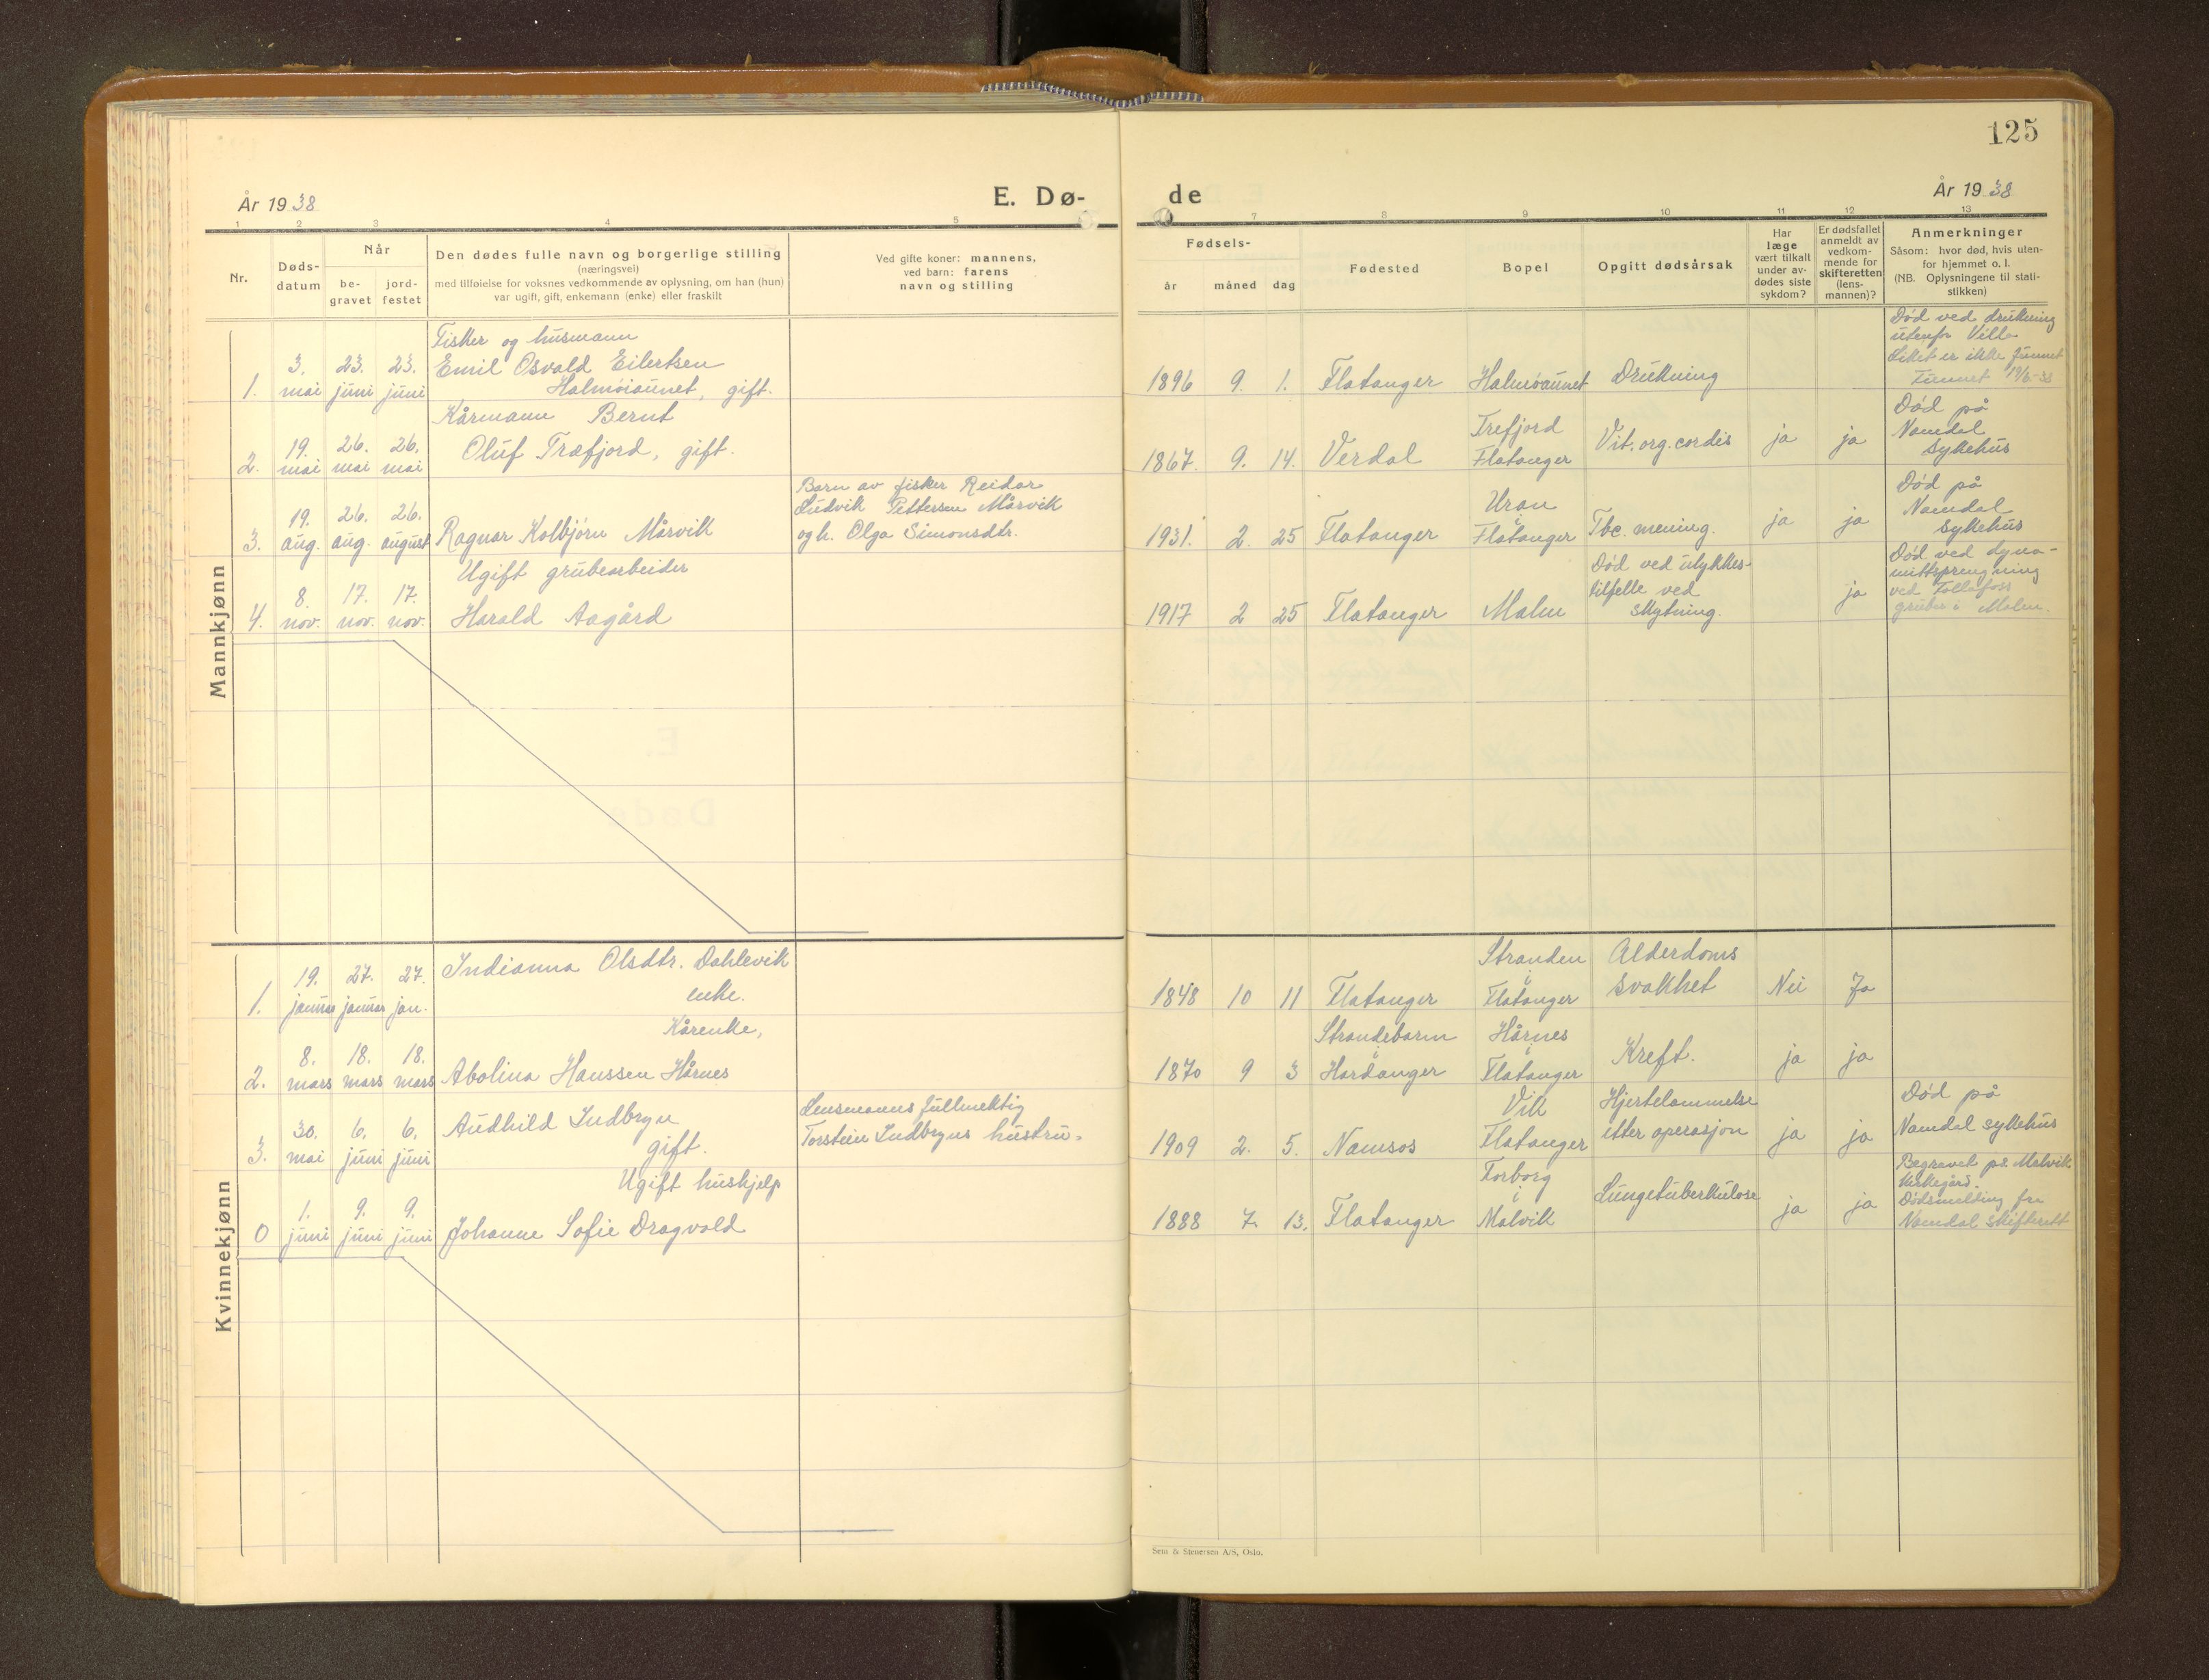 125
År 1938
E. Dø-
de
År 1938
1 2 3 4 5
7 8 9 10 11 12 13
Nr.
Døds-
datum
Når
be-
gravet
jord-
festet
Den dødes fulle navn og borgerlige stilling
(næringsvei)
med tilføielse for voksnes vedkommende av oplysning, om han (hun)
var ugift, gift, enkemann (enke) eller fraskilt
Ved gifte koner: mannens,
ved barn: farens
navn og stilling
Fødsels-
år
måned
dag
Fødested
Bopel
Opgitt dødsårsak
Har
læge
vært tilkalt
under av-
dødes siste
sykdom?
Er dødsfallet
anmeldt av
vedkom-
mende for
skifteretten
(lens-
mannen)?
Anmerkninger
Såsom: hvor død, hvis uten-
for hjemmet o. l.
(NB. Oplysningene til stati-
stikken)
Mannkjønn
1.
3.
mai
23.
juni
23.
juni
Fisker og husmann
Emil Osvald Eilertsen
Halmøiaunet, gift.
1896 9. 1. Flatanger Halmøaunet Drukning
Død ved drukning
utenfor Villa
Liket er ikke funnet
Funnet 17/6-38
2.
19.
mai
26.
mai
26.
mai
Kårmann Bernt
Oluf Træfjord, gift.
1867. 9. 14. Verdal
Trefjord
Flatanger
Vit. org. cordis
ja ja
Død på
Namdal
sykehus
3.
19.
aug.
26.
aug.
26.
august
Ragnar Kolbjørn Mårvik
Barn av fisker Reidar
Ludvik Pettersen Mårvik
og h. Olga Simonsdtr.
1931. 2. 25 Flatanger
Uran
i
Flatanger
Tbc. mening.
ja ja
Død på
Namdal
sykehus
4.
8.
nov.
17.
nov.
17.
nov.
Ugift grubearbeider
Harald Aagård
1917 2 25 Flatanger Malm
Død ved ulykkes-
tilfelle ved
skytning.
ja
Død ved dyna-
mittsprengning
ved Follafoss
gruber i Malm.
Kvinnekjønn
1.
19.
januar
27.
januar
27.
jan.
Indianna Olsdtr. Dahlevik
enke.
1848 10 11 Flatanger
Stranden
i
Flatanger
Alderdoms
svakhet
Nei Ja
2.
8.
mars
18.
mars
18.
mars
Kårenke,
Abolina Hanssen Hårnes
1870 9 3
Strandebarm
i
Hardanger
Hårnes
i
Flatanger
Kreft.
ja ja
3.
30.
mai
6.
juni
6.
juni
Audhild Indbryn
gift.
Lensmanns fullmektig
Torstein Indbryns hustru.
1909 2. 5. Namsos
Vik
Flatanger
Hjertelammelse
etter operasjon
ja ja
Død på
Namdal sykehus
0
1.
juni
9.
juni
9.
juni
Ugift hushjelp
Johanne Sofie Dragvold
1888 7. 13. Flatanger
Torborg
i
Malvik
Lungetuberkulose
ja ja
Begravet på Malvik
kirkegård.
Dødsmelding fra
Namdal skifterett
Sem & Stenersen A/S, Oslo.